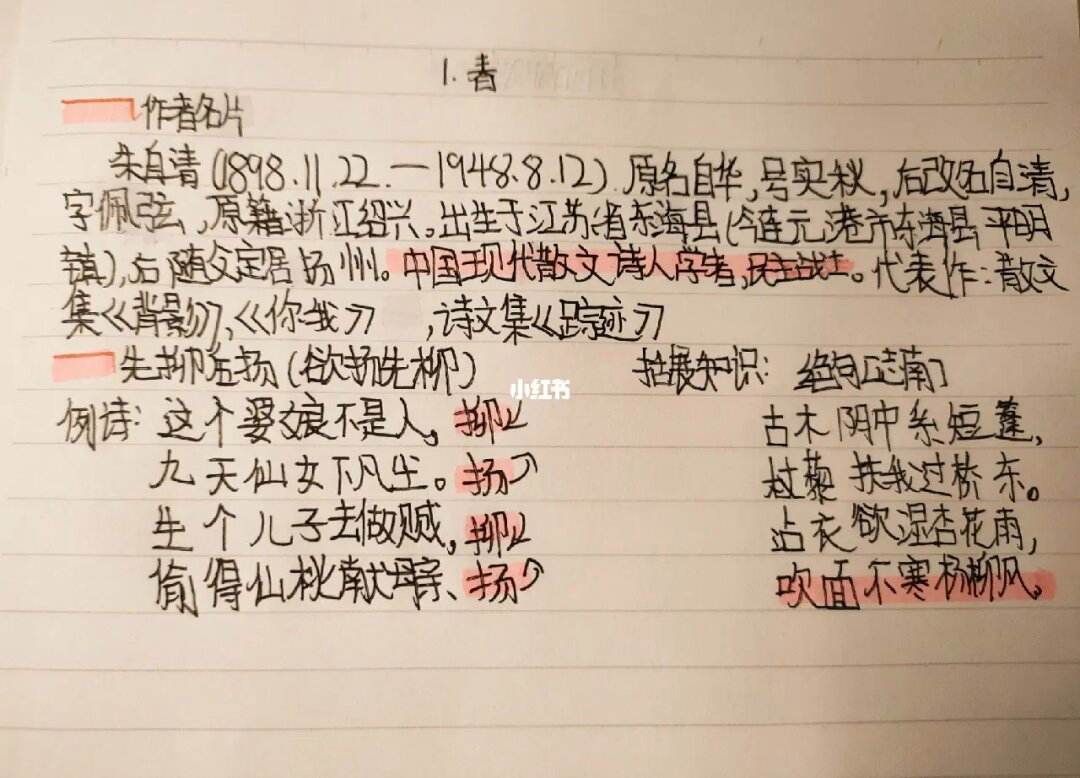 1.春
作者名片
朱自清(1898.11.22.—1948.8.12).原名自华,号实秋,后改名自清,
字佩弦,原籍浙江绍兴。出生于江苏省东海县(今连元港市东海县平明
镇),后随父定居扬州。中国现代散文诗人学者,民主战士。代表作:散文
集《背影》,《你我》,诗文集《踪迹》
先抑后扬(欲扬先抑) 拓展知识: 绝句[志南]
例诗:这个婆娘不是人,抑↓ 古木阴中系短蓬,
九天仙女下凡尘。扬↗ 杖藜扶我过桥东。
生个儿子去做贼,抑↓ 沾衣欲湿杏花雨,
偷得仙桃献母亲、扬↗ 吹面不寒杨柳风。
小红书